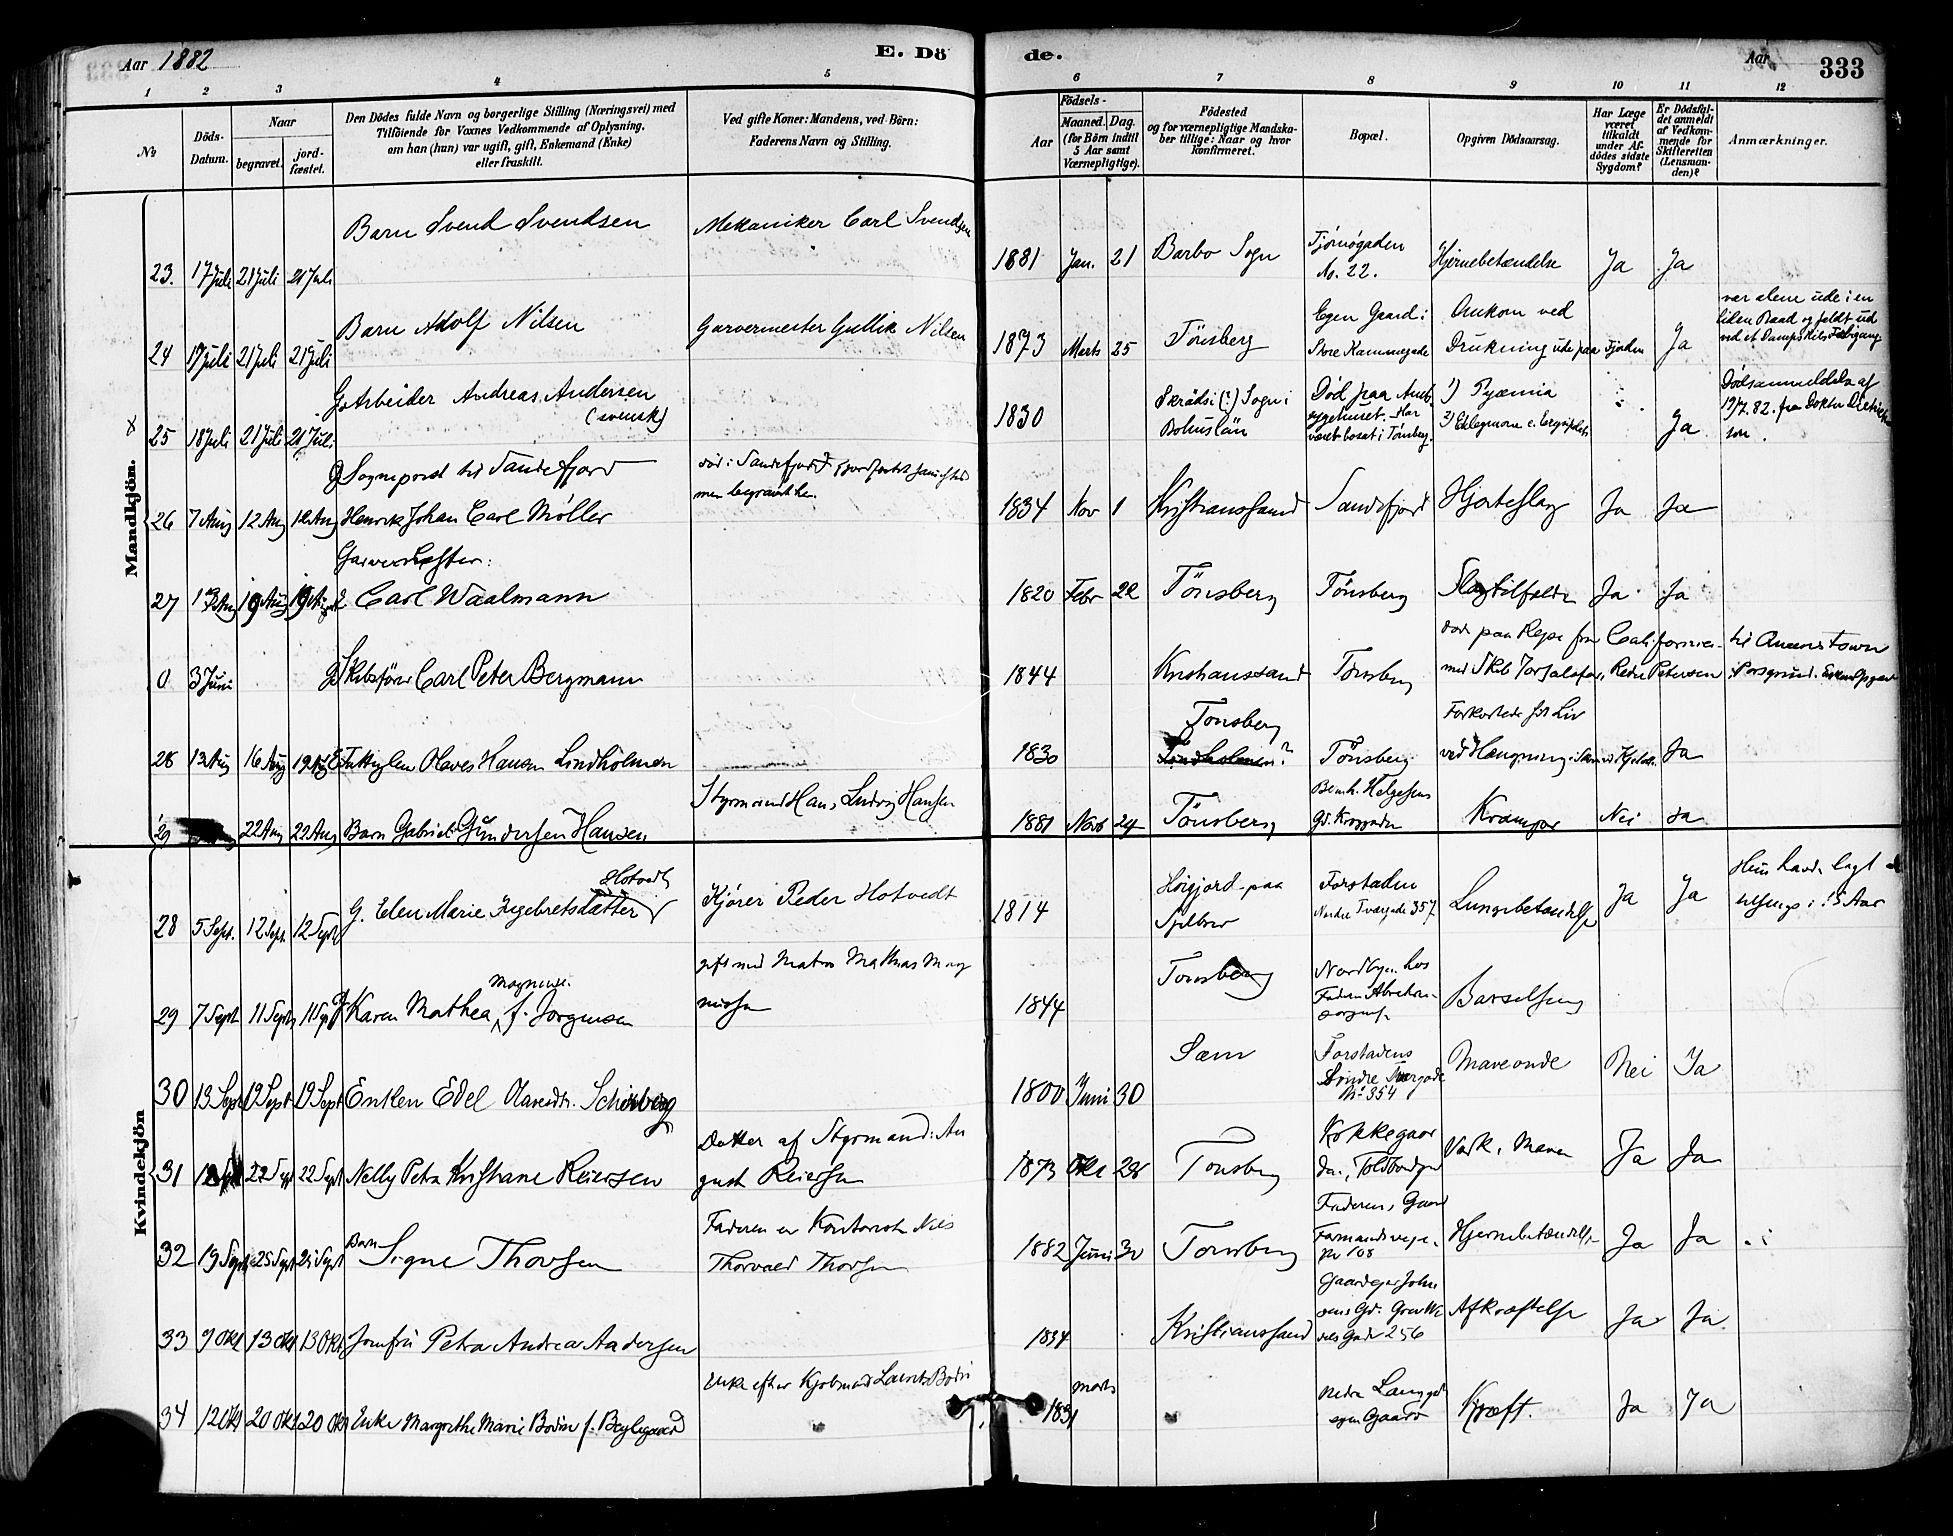 Aar 1882
E. Dö
de.
Aar
333
1 2 3 4 5 6 7 8 9 10 11 12
№
Döds-Datum.
Naar
begravet.
jord-fæstet.
Den Dödes fulde Navn og borgerlige Stilling (Næringsvei) med
Tilföiende for Voxnes Vedkommende af Oplysning,
om han (hun) var ugift, gift, Enkemand (Enke)
eller fraskilt.
Ved gifte Koner: Mandens, ved Börn:
Faderens Navn og Stilling.
Födsels-
Aar
Maaned. Dag.
(for Börn indtil
5 Aar samt
Værnepligtige).
Födested
og for værnepligtige Mandska-
ber tillige: Naar og hvor
konfirmeret.
Bopæl.
Opgiven Dödsaarsag.
Har Læge
været
tilkaldt
under Af-
dödes sidste
Sygdom?
Er Dödsfal-
det anmeldt
af Vedkom-
mende for
Skifteretten
(Lensman-
den)?
Anmærkninger.
Mandkjön.
23. 17 Juli 21 Juli 21 Juli Barn Svend Svendsen Mekaniker Carl Svendsen 1881 Jan. 21 Barbo Sogn Tjömögaden
No. 22. Hjernebetændelse Ja Ja
24 17 Juli 21 Juli 21 Juli Barn Adolf Nilsen Garvermester Gullik Nilsen 1873 Marts 25 Tönsberg Egen Gaard i
Store Kammegade Omkom ved
Drukning ude paa Fjorden Ja var alene ude i en
liden Baad og faldt ud
ved et Dampskibs Forbigang
25 18 Juli 21 Juli 21 Jul. G. Arbeider Andreas Andersen
(svensk) 1830 Skrädsi (?) Sogn i
Bohuslän Död paa Amts
sygehuset. Har
været bosat i Tønsberg. 1) Pyæmia
Ja Dödsanmeldelse af
19/7. 82. fra Doktor
26 7 Aug 12 Aug 12 Aug G Sogneprest til Sandefjord
Henrik Johan Carl Møller død i Sandefjord
men begravet her. 1834 Nov 1 Kristianssand Sandefjord Hjerteslag Ja Ja
27 13 Aug 19 Aug 19 Aug Garvermester:
Carl Waalmann 1820 Febr 22 Tönsberg Tönsberg Slagtilfælde Ja Ja
0 3 Juni G Skibsfører Carl Peter Bergmann 1844 Kristianssand Tønsberg død paa Rejse fra Californien til Queenstown
med Skib Jorsalafar, Reder Petersen i Porsgrund.
28 13 Aug 16 Aug 19 Aug Fattiglem Olaves Hansen Lindholmen 1830 Tonsberg
Lindholmen? Tönsberg Forkortede sit Liv
ved Hængning i Ja
29 22 Aug 22 Aug Barn Gabriel Gundersen Hansen Styrmand Hans Ludvig Hansen 1881 Novb 24 Tönsberg Bernh. Helgesens
Gd. Krampe Nei Ja
Kvindekjön
28 5 Sept. 12 Sept. 12 Sept G. Elen Marie Ingebretsdatter Hotvedt Kjører Peder Hotvedt 1814 Høigjord paa
Forstaden
Nordre Tværgade 357 Lungebetændelse Ja Ja Hun havde ligt
tilsengs i 15 Aar
29 7 Sept 11 Sept 11 Sept G Karen Mathea Magnuss. f. Jörgensen gift med Matros Mathias Mag
nussen 1844 Tonsberg Nordbyen hos
Faderen Abraham
Barselseng
30 13 Sept 19 Sept 19 Sept Enken Edel Olavesdtr. Schönberg 1800 Juni 30 Sæm Forstadens
Søndre Tvergade
No 354 Maveonde Nei Ja
31 22 Sept 22 Sept Nelly Petra Kristiane Reiersen Datter af Styrmand: Au
gust Reiersen 1873 Okt 28 Tonsberg Kokkegaar
den, Toldbodgn Værk i Maven Ja Ja
32 19 Sept 25 Sept 25 Sept Barn Signe Thorsen Faderen er Kontorist Nils
Thorvald Thorsen 1882 Juni 30 Tonsberg Faderens Gaard
Farmandsveien
No 108 Hjernebetændelse Ja Ja
33 9 Okt 13 Okt 13 Okt Jomfru Petra Andrea Andersen 1834 Kristianssand Gaardeger John
sens Gd. Grev We
dels Gade 256 Afkræftelse Ja Ja
34 12 Okt 20 Okt 20 Okt Enke Margrethe Marie Bodin f. Bryhgaard Enke efter Kjøbmand Laurits Bodin 1831 marts Nedre Langgd
egen Gaard Kræft. Ja Ja